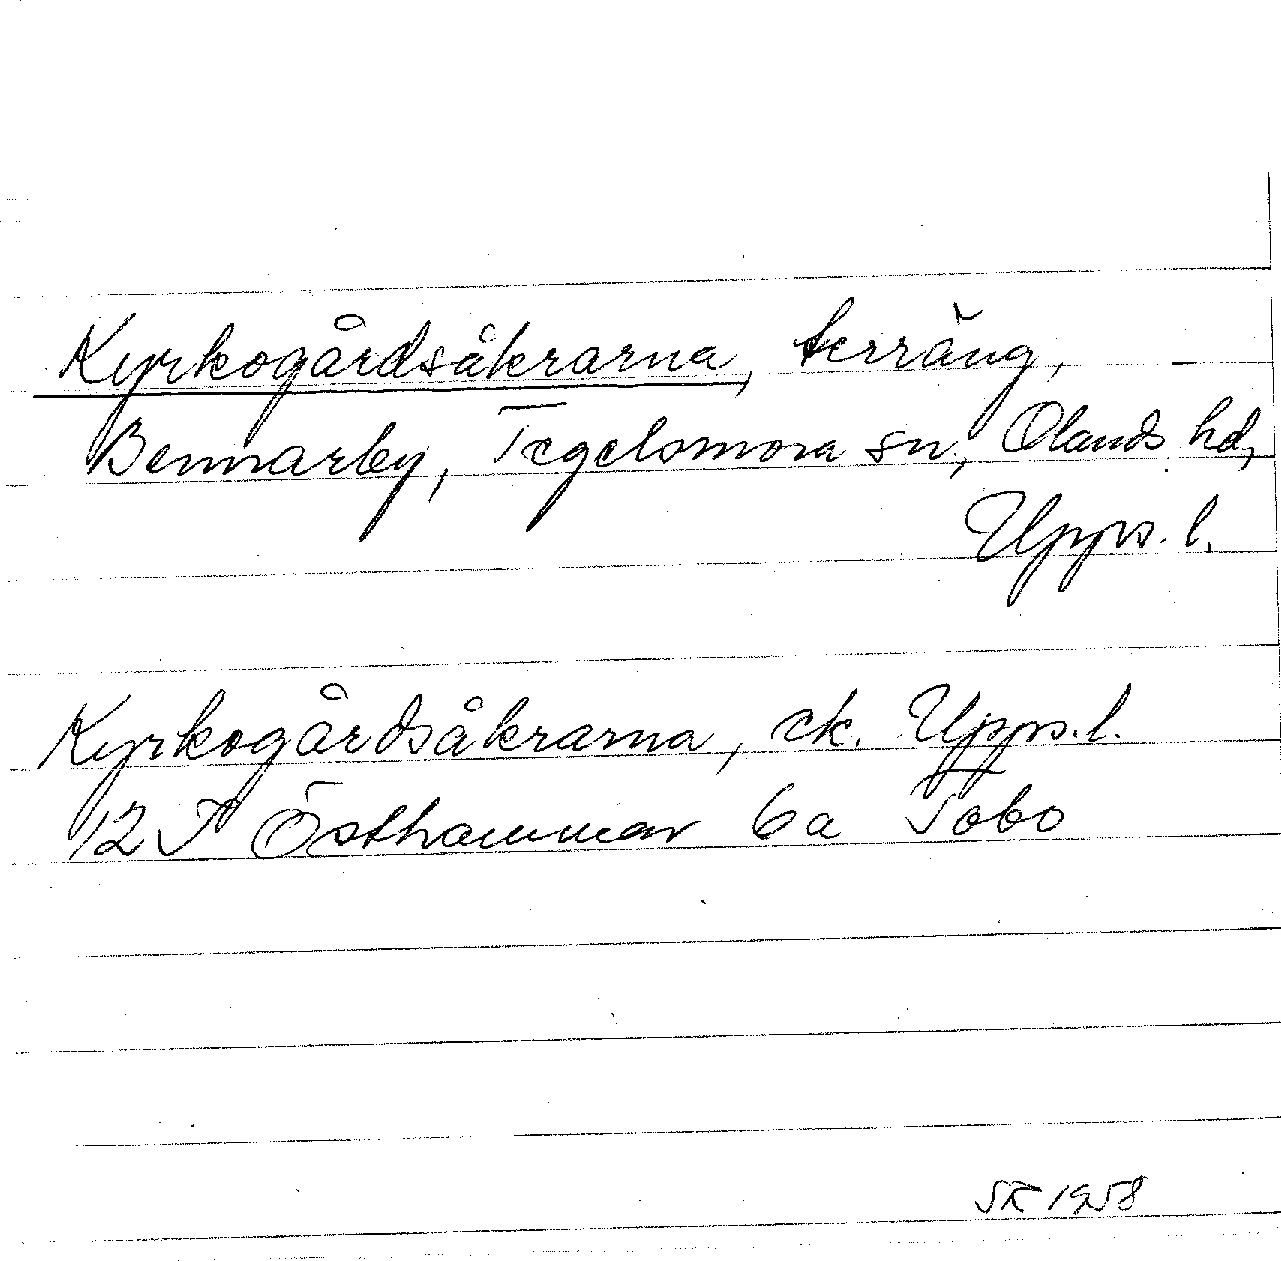 Kyrkogårdsåkrarna, terräng,
Bennarby, Tegelsmora sn, Olands hd,
Upps. l.
Kyrkogårdsåkrarna, ek. Upps. l.
12 I Östhammar 6a Tobo
SR 1958